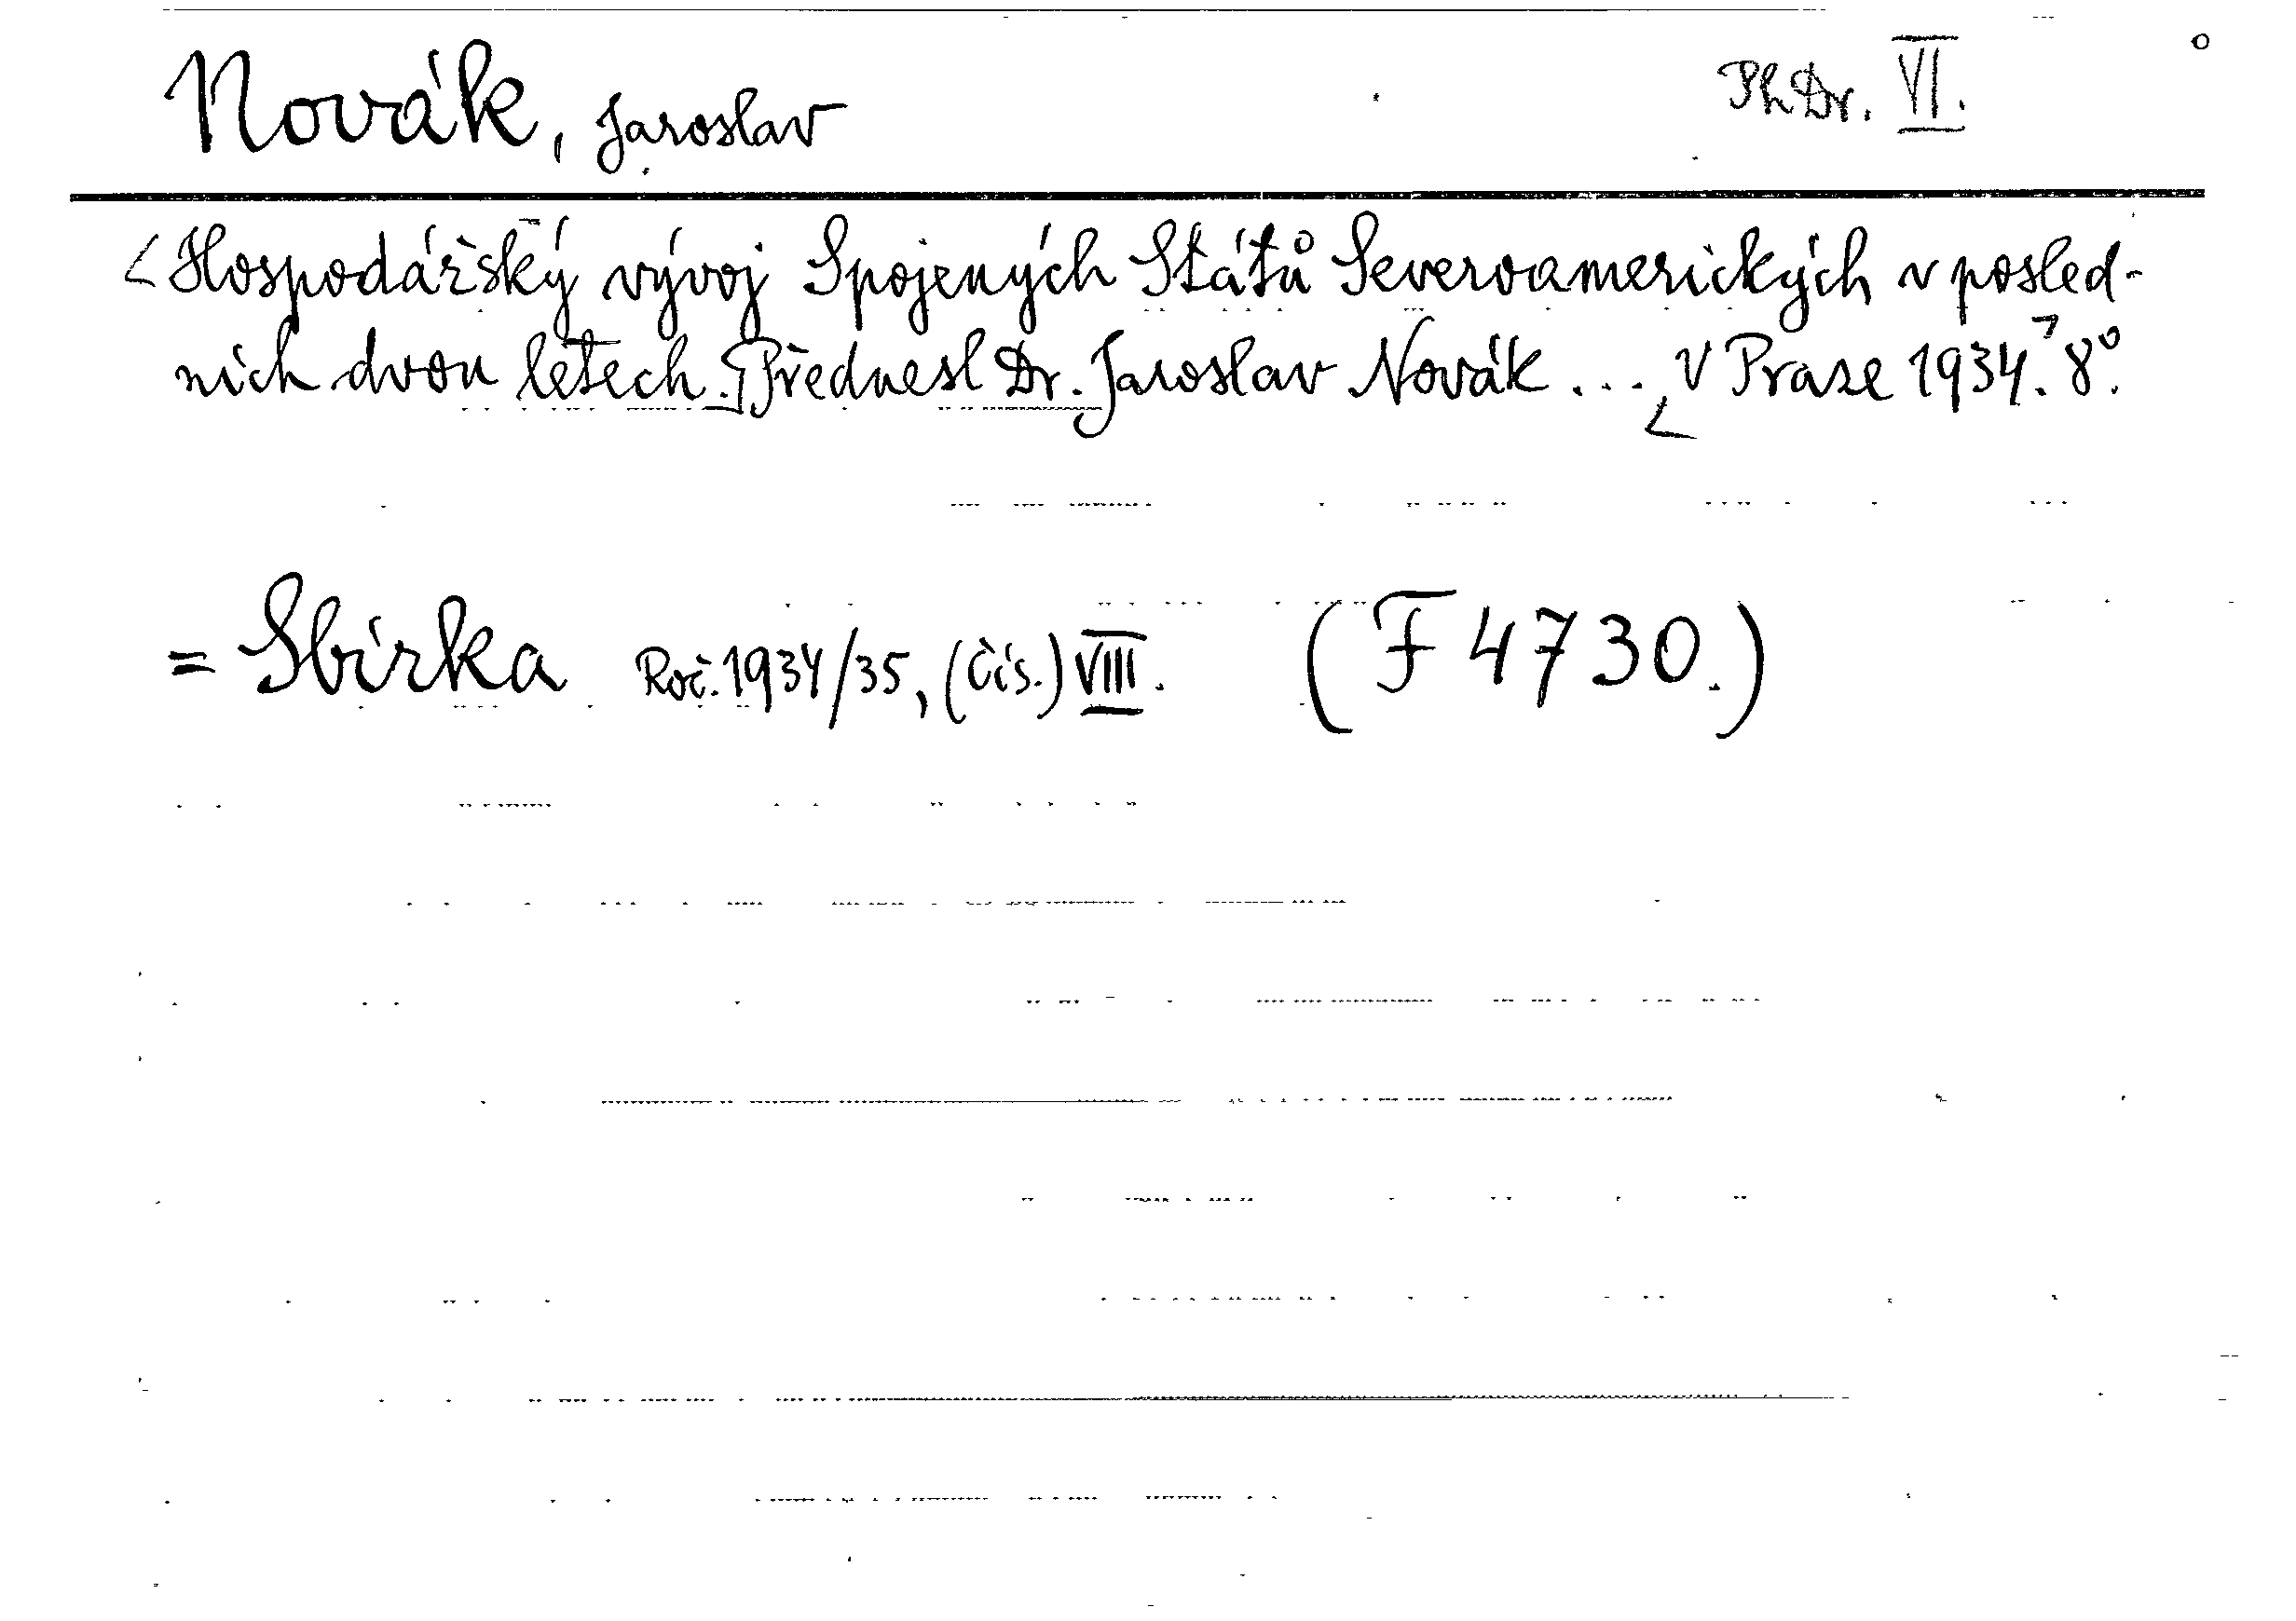 Novák, Jaroslav PhDr. VI.
<Hospodářský vývoj Spojených Států Severoamerických v posled-
ních dvou letech. Přednesl Dr. Jaroslav Novák ... V Praze 1934. 8°.
= Sbírka Roč. 1934/35, (čís.) VIII. (F 4730.)